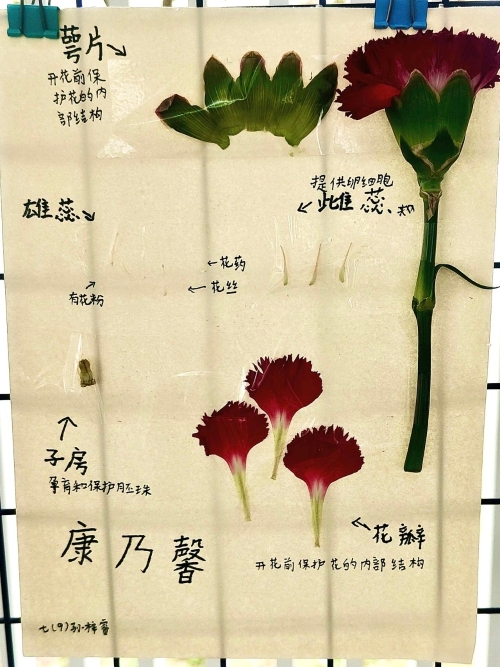 萼片
开花前保
护花的内
部结构
提供卵细胞
雌蕊
雄蕊
←花药
←花丝
有花粉
子房
孕育和保护胚珠
花瓣
开花前保护花的内部结构
康乃馨
七(9)孙梓睿